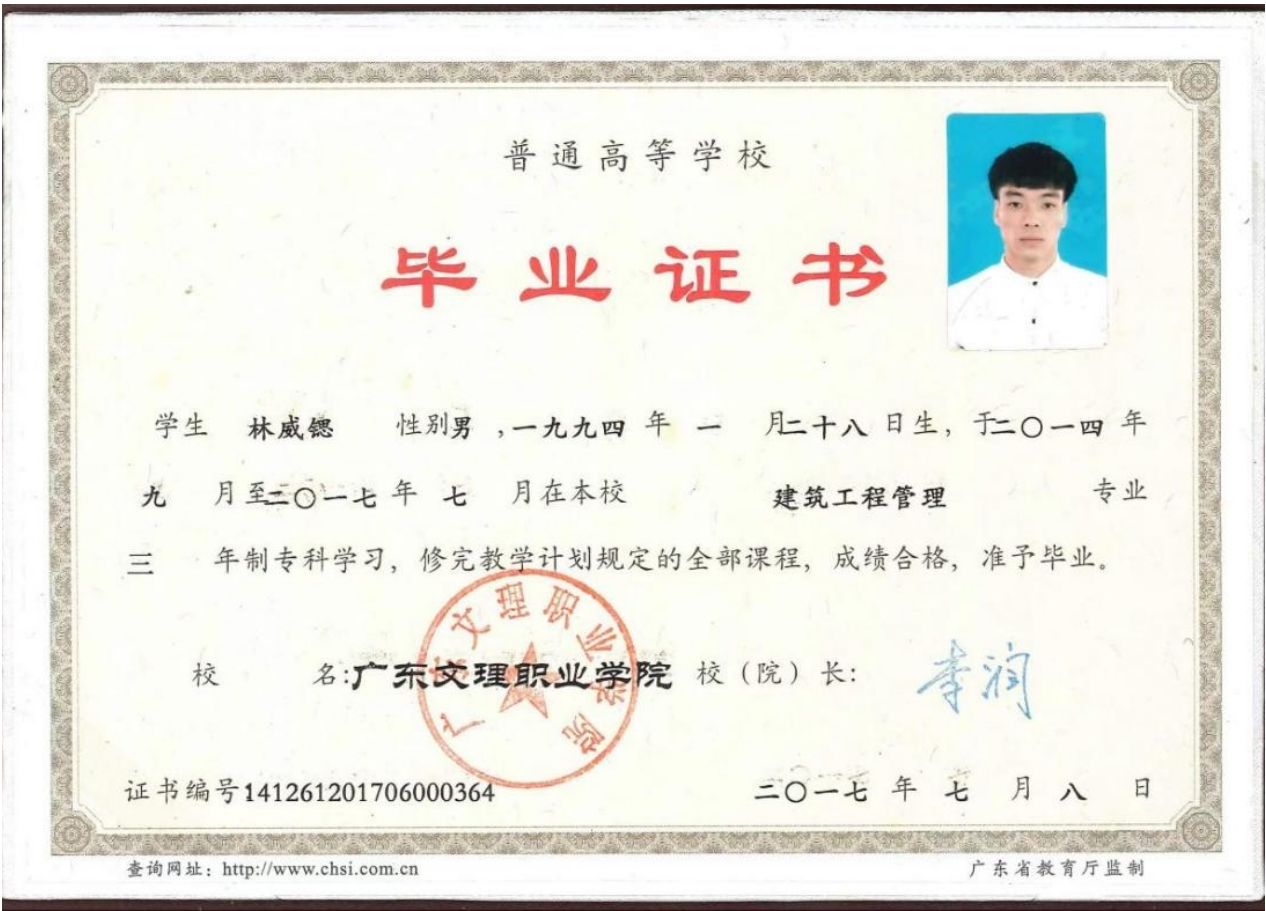 普通高等学校
毕业证书
学生 林威锶 性别男,一九九四年一月二十八日生,于二〇一四年
九月至二〇一七年七月在本校 建筑工程管理 专业
三年制专科学习,修完教学计划规定的全部课程,成绩合格,准予毕业。
广东文理职业学院
校 名:广东文理职业学院 校(院)长: 李润
证书编号:141261201706000364 二〇一七年七月八日
查询网址:http://www.chsi.com.cn 广东省教育厅监制